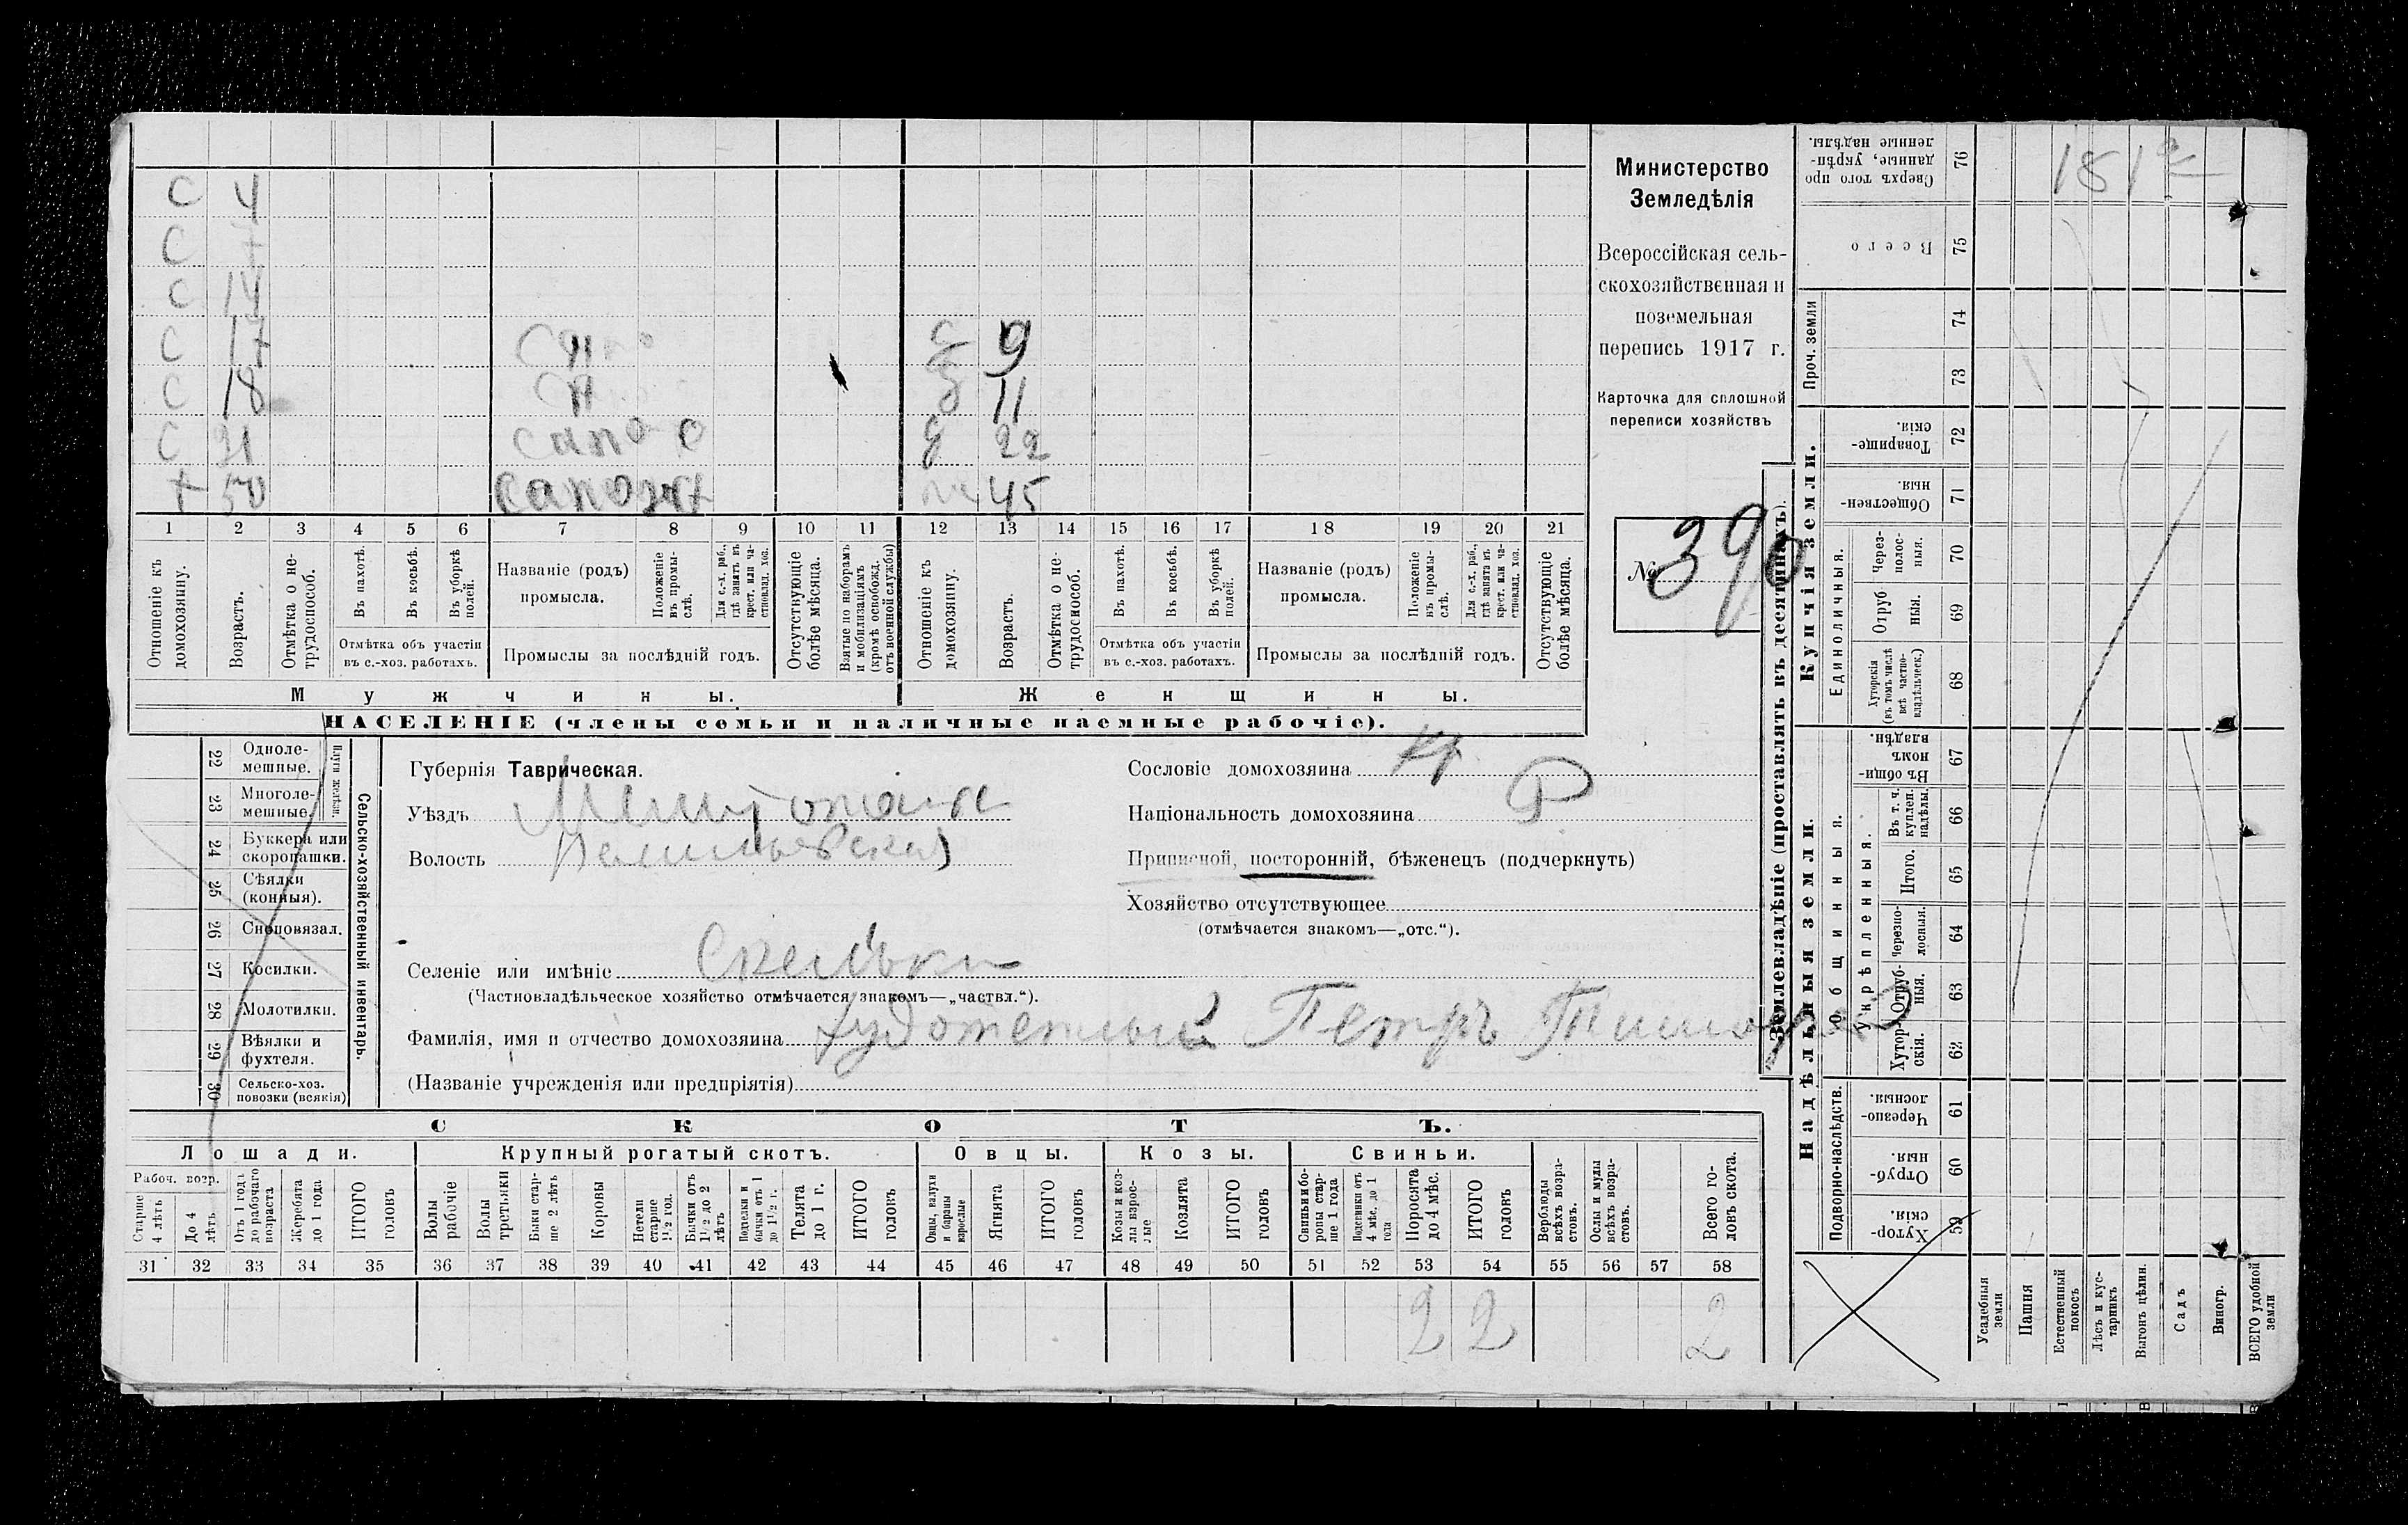 с 4
с 7
с 14
с 17
с 9
с 18
д 11
с 21 сапо
д 22
х 50 сапожн
45
1 2 3 4 5 6 7 8 9 10 11 12 13 14 15 16 17 18 19 20 21
Отношеніе къ домохозяину.
Возрастъ.
Отмѣтка о не-трудоспособ.
Въ пахотѣ.
Въ косьбѣ.
Въ уборкѣ полей.
Отмѣтка объ участіи
въ с.-хоз. работахъ.
Названіе (родъ)
промысла.
Положеніе въ промы-слѣ.
Для с.-х. раб., гдѣ занятъ въ крест. или ча-стновлад. хоз.
Промыслы за послѣдній годъ.
Отсутствующіе болѣе мѣсяца.
Взятые по наборамъ и мобилизаціямъ (кромѣ освобожд. отъ военной службы)
Отношеніе къ домохозяину.
Возрастъ.
Отмѣтка о не-трудоспособ.
Въ пахотѣ.
Въ косьбѣ.
Въ уборкѣ полей.
Отмѣтка объ участіи
въ с.-хоз. работахъ.
Названіе (родъ)
промысла.
Положеніе въ промы-слѣ.
Для с.-х. раб., гдѣ занята въ крест. или ча-стновлад. хоз.
Промыслы за послѣдній годъ.
Отсутствующіе болѣе мѣсяца.
Мужчины.
Женщины.
НАСЕЛЕНІЕ (члены семьи и наличные наемные рабочіе).
Министерство
Земледѣлія
Всероссійская сель-
скохозяйственная и
поземельная
перепись 1917 г.
Карточка для сплошной
переписи хозяйствъ
№ 390
22 Одноле-мешные.
23 Многоле-мешные.
Плуги желѣзн.
24 Буккера или скоропашки.
25 Сѣялки (конныя).
26 Сноповязал.
27 Косилки.
28 Молотилки.
29 Вѣялки и фухтеля.
30 Сельско-хоз. повозки (всякія)
Сельско-хозяйственный инвентарь.
Губернія Таврическая.
Уѣздъ
Волость
Селеніе или имѣніе Скельки
(Частновладѣльческое хозяйство отмѣчается знакомъ—„частвл.“).
Фамилія, имя и отчество домохозяина Петръ
(Названіе учрежденія или предпріятія)
Сословіе домохозяина кр.
Національность домохозяина Р
Приписной, посторонній, бѣженецъ (подчеркнуть)
Хозяйство отсутствующее
(отмѣчается знакомъ—„отс.“).
СКОТЪ.
Лошади. Крупный рогатый скотъ. Овцы. Козы. Свиньи.
Рабоч. возр.
Старше 4 лѣтъ
До 4 лѣтъ
Отъ 1 года до рабочаго возраста
Жеребята до 1 года
ИТОГО головъ
Волы рабочіе
Волы третьяки
Быки стар-ше 2 лѣтъ
Коровы
Нетели старше 1½ год.
Бычки отъ 1½ до 2 лѣтъ
Подтелки и бычки отъ 1 до 1½ г.
Телята до 1 г.
ИТОГО головъ
Овцы, валухи и бараны взрослые
Ягнята
ИТОГО головъ
Козы и коз-лы взрос-лые
Козлята
ИТОГО головъ
Свиньи и бо-ровы стар-ше 1 года
Подсвинки отъ 4 мѣс. до 1 года
Поросята до 4 мѣс.
ИТОГО головъ
Верблюды всѣхъ возра-стовъ.
Ослы и мулы всѣхъ возра-стовъ.
Всего го-ловъ скота.
31 32 33 34 35 36 37 38 39 40 41 42 43 44 45 46 47 48 49 50 51 52 53 54 55 56 57 58
2 2 2
Землевладѣніе (проставлять въ десятинахъ).
Надѣльныя земли.
Купчія земли.
Проч. земли
Подворно-наслѣдств.
Общинныя.
Укрѣпленныя.
Единоличныя.
Хутор-скія. 59
Отруб-ныя. 60
Черезпо-лосныя. 61
Хутор-скія. 62
Отруб-ныя. 63
Черезпо-лосныя. 64
Итого. 65
Въ т. ч. куплен. надѣлы. 66
Въ общин-номъ владѣн. 67
Хуторскія (въ томъ числѣ всѣ частно-владѣльческ.) 68
Отрубныя. 69
Черезполос-ныя. 70
Обществен-ныя. 71
Товарище-скія. 72
73
74
Всего 75
Сверхъ того про-данные, укрѣп-ленные надѣлы. 76
Усадебныя земли
Пашня
Естественный покосъ
Лѣсъ и кус-тарникъ
Выгонъ цѣлин.
Садъ
Виногр.
ВСЕГО удобной земли
181